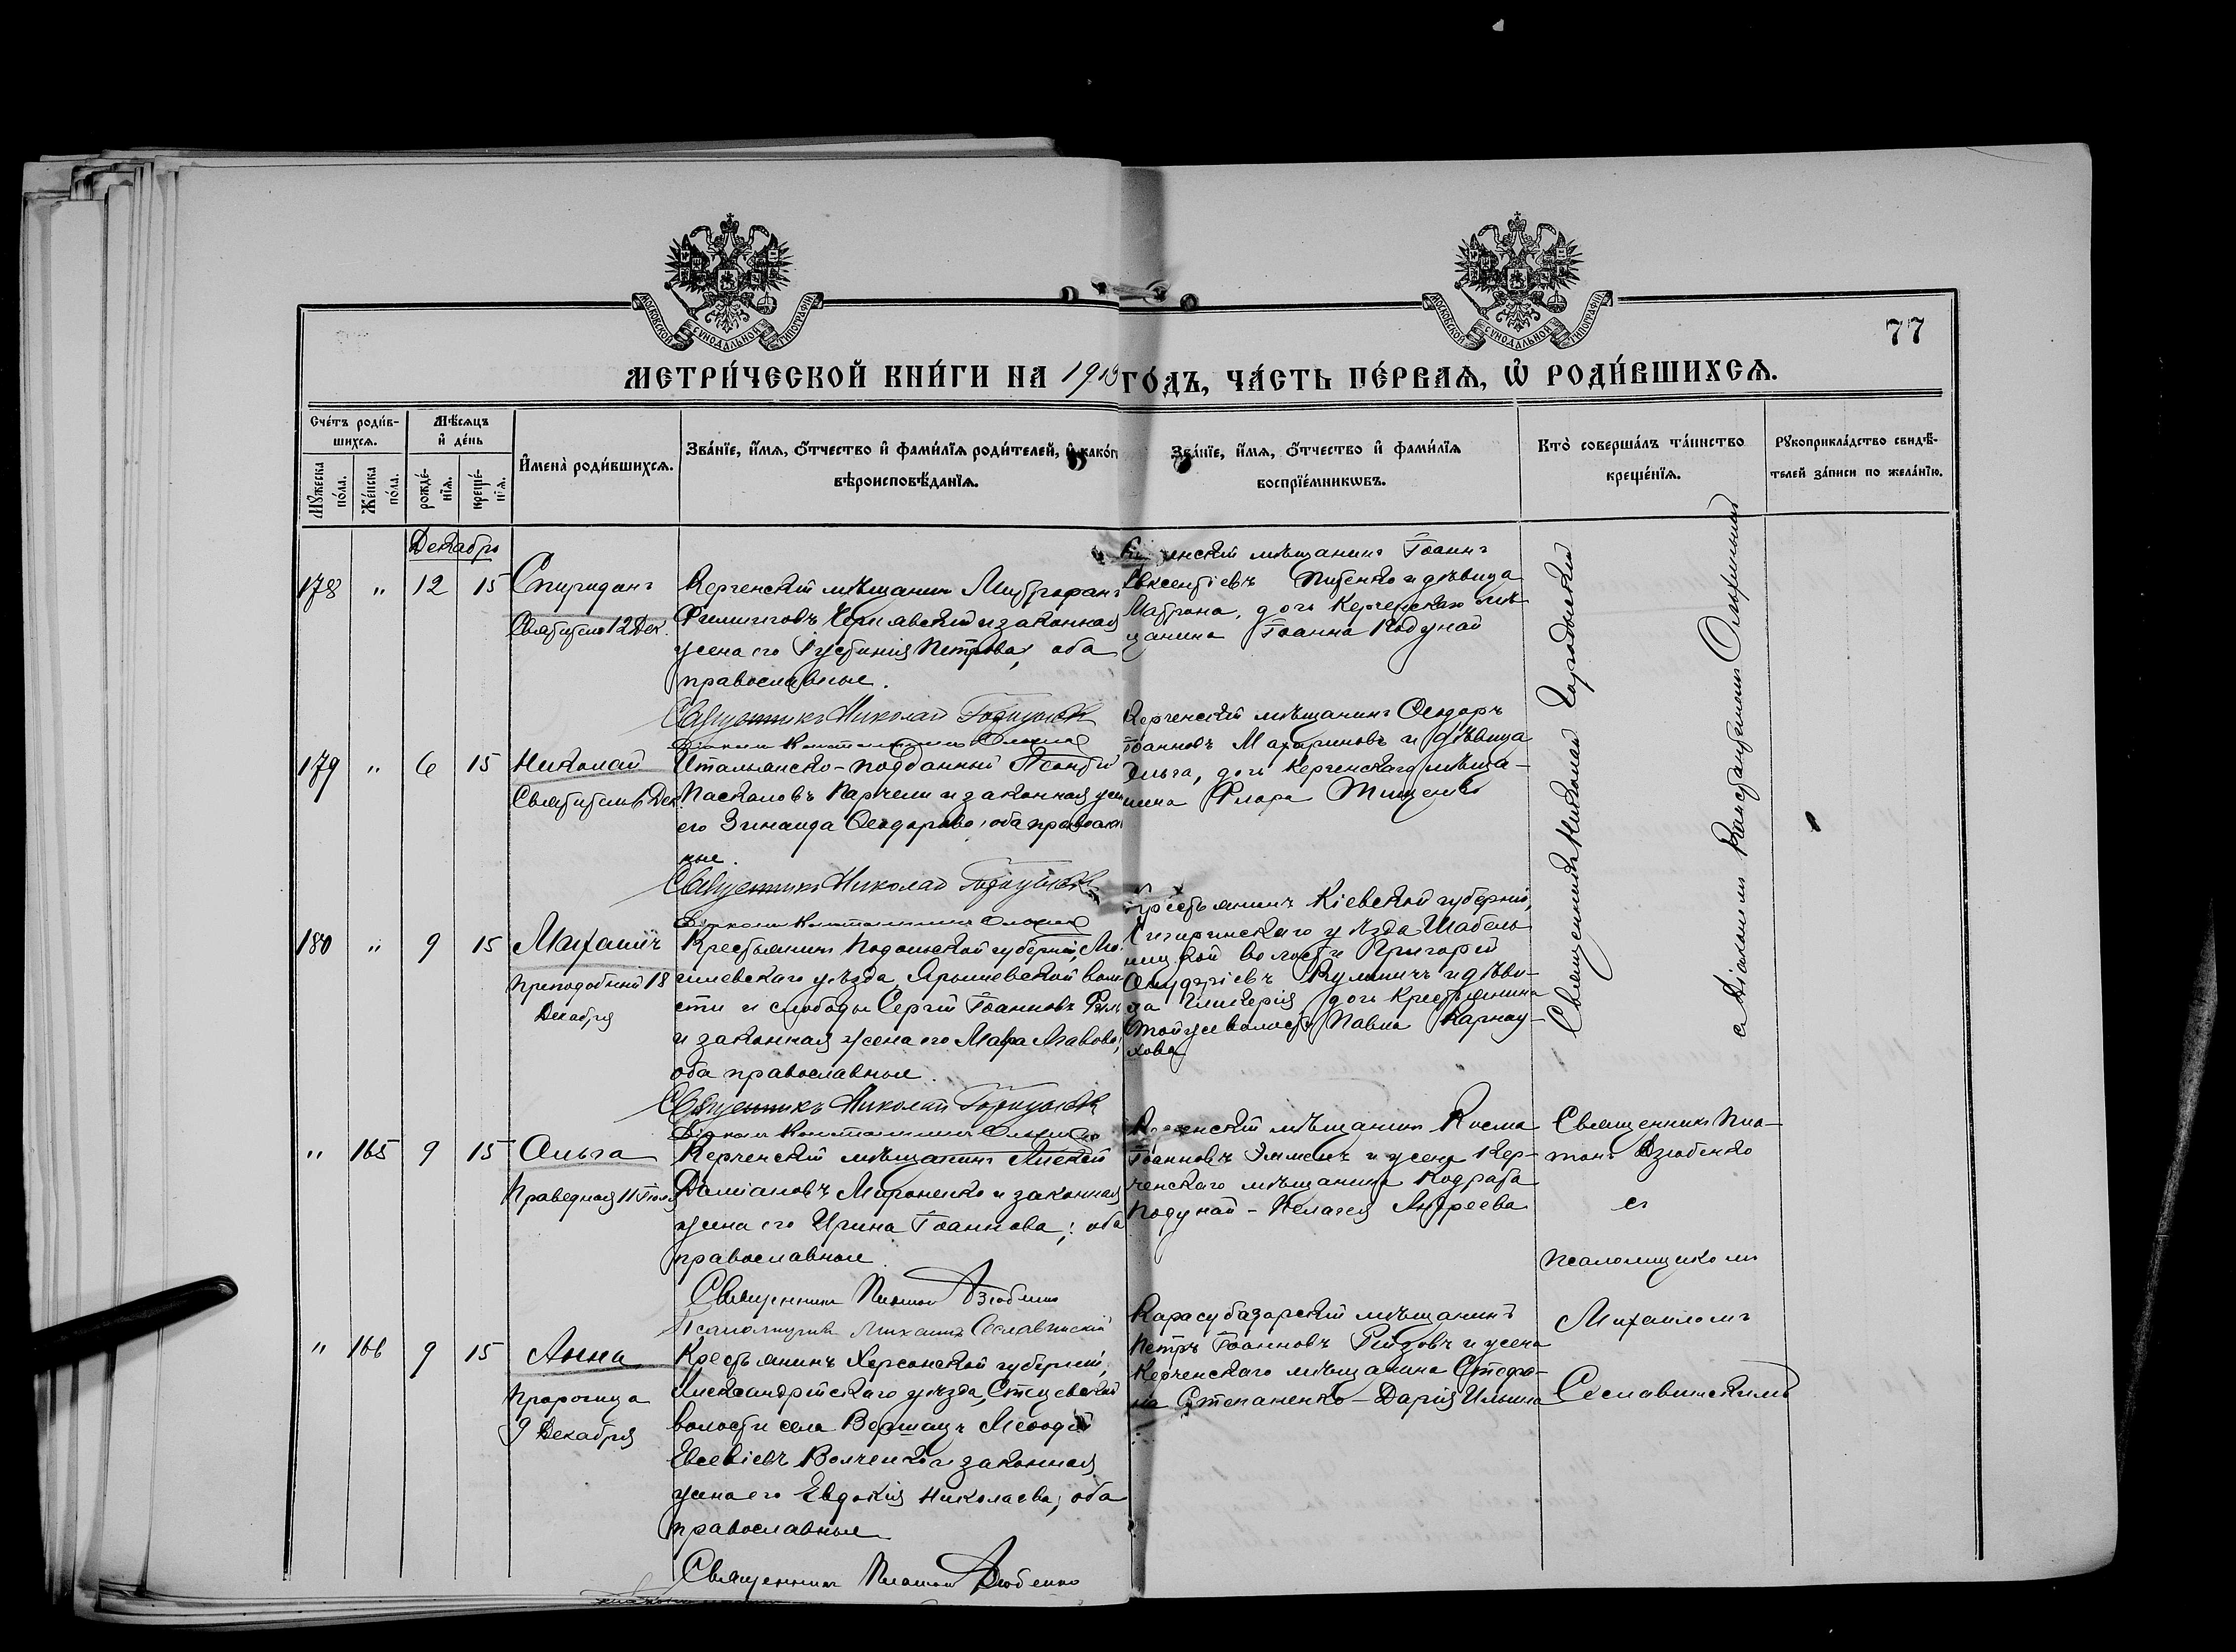 МОСКОВСКОЙ СѴНОДАЛЬНОЙ ТИПОГРАФІИ
МОСКОВСКОЙ СѴНОДАЛЬНОЙ ТИПОГРАФІИ
77
МЕТРИ́ЧЕСКОЙ КНИ́ГИ НА 1913 ГО́ДЪ, ЧА́СТЬ ПЕ́РВАѦ, Ѡ҆ РОДИ́ВШИХСѦ.
Сче́тъ роди́в-
шихсѧ.
Мѣ́сѧцъ
и҆ де́нь
Мꙋ́жеска по́ла.
Же́нска по́ла.
рожде́-нїѧ.
креще́-нїѧ.
И҆мена̀ роди́вшихсѧ.
Зва́нїе, и҆́мѧ, ѻ҆́тчество и҆ фами́лїѧ роди́телей, и҆ како́гѡ
вѣроисповѣ́данїѧ.
Зва́нїе, и҆́мѧ, ѻ҆́тчество и҆ фами́лїѧ
воспрїе́мникѡвъ.
Кто̀ соверша́лъ та́инство
креще́нїѧ.
Рꙋкоприкла́дство свидѣ́-
телей за́писи по жела́нїю.
Декабрь
178 " 12 15 Спиридонъ
Святителя 12 Дек.
Керченскій мѣщанинъ Митрофанъ
Филипповъ Чернявскій и законная
жена его Іустинія Петрова, оба
православные.
Священникъ Николай
Діаконъ Константинъ
мѣщанинъ Іоаннъ
Евксентіевъ и дѣвица
Матрона, дочь Керченскаго мѣ-
щанина Іоанна Кодунай
179 " 6 15 Николай
Святителя 6 Дек.
Итальянско-подданный
Паскаловъ Парчели и законная жена
его Зинаида Ѳеодорова, оба православ
ные.
Священникъ Николай
Діаконъ Константинъ
Керченскій мѣщанинъ Ѳеодоръ
Іоанновъ и дѣвица
Ольга, дочь Керченскаго мѣща-
нина Флора Тищенко
180 " 9 15 Михаилъ
Преподобный 18
Декабря
Крестьянинъ Подольской губерніи, Мо-
гилевскаго уѣзда, Ярышевской воло
сти и слободы Сергій Іоанновъ
и законная жена его
оба православные.
Священникъ Николай
Діаконъ Константинъ
Крестьянинъ Кіевской губерніи,
Чигиринскаго уѣзда Шабель-
ницкой волости Григорій
Онуфріевъ и дѣви-
ца Гликерія дочь крестьянина
той же волости Павла Карнау-
хова
Священникъ Николай
съ Діакономъ Константиномъ
" 165 9 15 Ольга
Праведная 11 Іюля
Керченскій мѣщанинъ Алексій
Даміановъ Мироненко и законная
жена его Ирина Іоаннова; оба
православные
Священникъ Платонъ Дзюбенко
Псаломщикъ Михаилъ Сеславинскій
Керченскій мѣщанинъ Косма
Іоанновъ и жена Кер-
ченскаго мѣщанина Кодрата
Подунай - Пелагея Андреева
Священникъ Пла-
тонъ Дзюбенко
съ
псаломщикомъ
Михаиломъ
Сеславинскимъ
" 166 9 15 Анна
Пророчица
9 Декабря
Крестьянинъ Херсонской губерніи,
Александрійскаго уѣзда,
волости села Вершацъ Меѳодій
Евсевіевъ Волченко и законная
жена его Евдокія Николаева; оба
православные
Священникъ Платонъ Дзюбенко
Карасубазарскій мѣщанинъ
Петръ Іоанновъ и жена
Керченскаго мѣщанина Стефа-
на Степаненко - Дарія Ильина